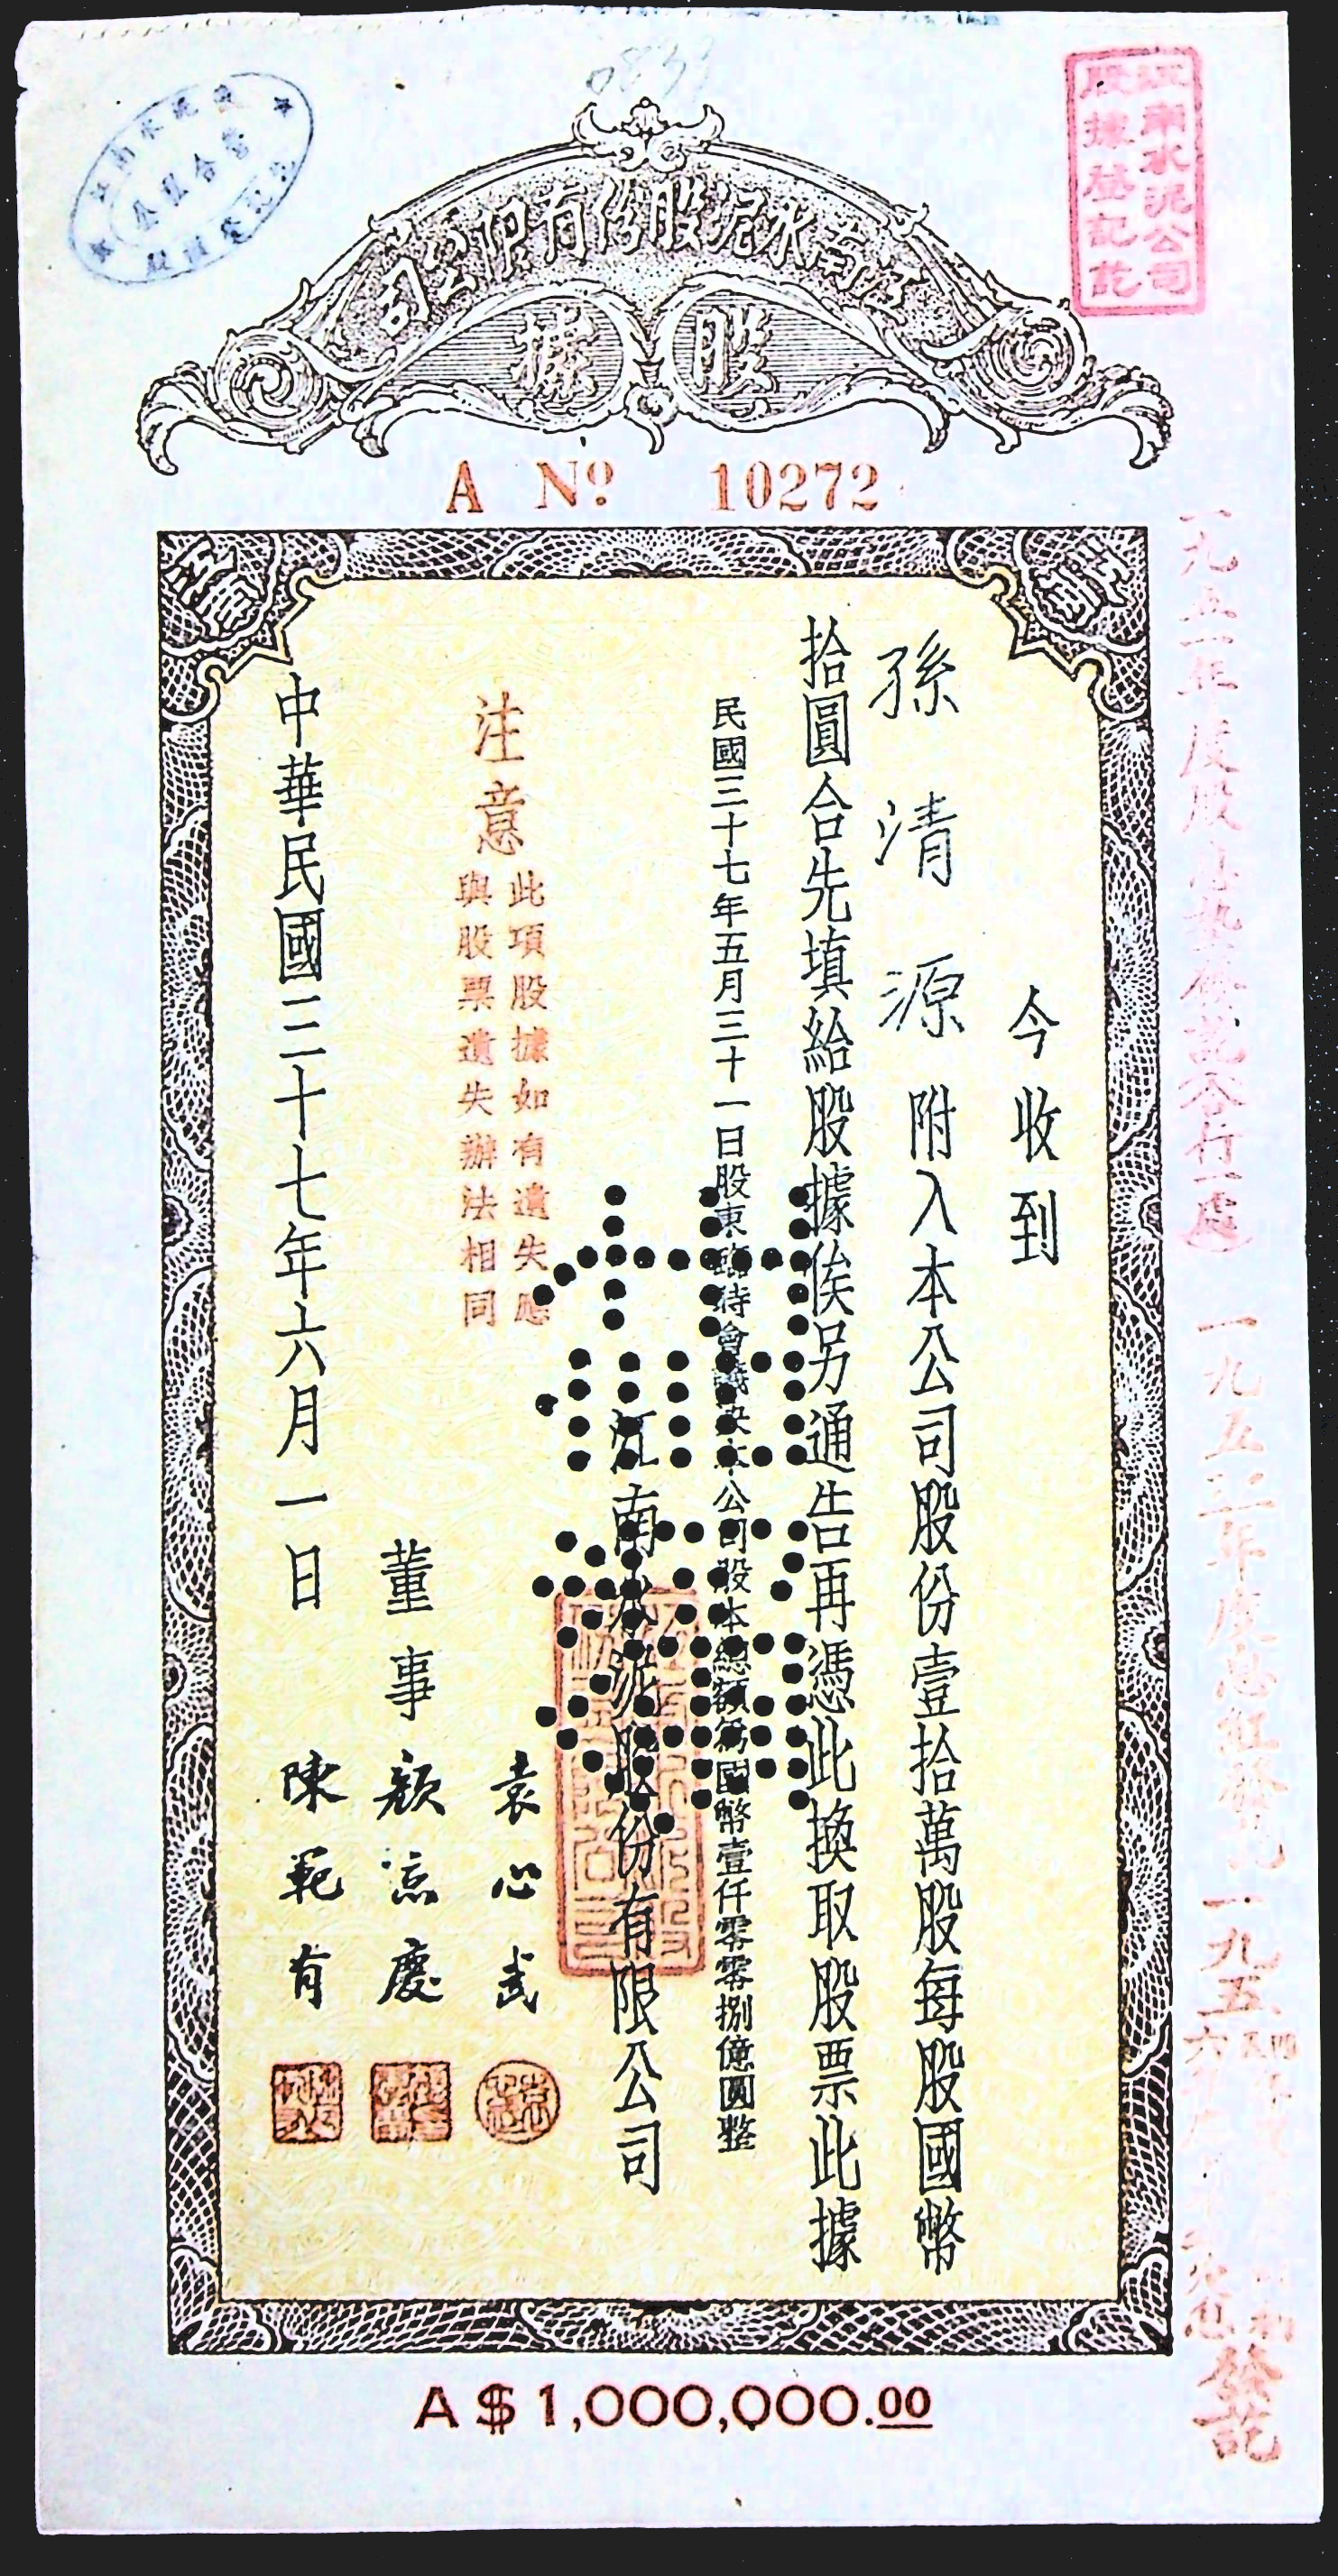 江南水泥股份有限公司
股據
A No 10272
江南水泥公司
股據登記訖
今收到
孫清源附入本公司股份壹拾萬股每股國幣
拾圓合先填給股據俟另通告再憑此換取股票此據
民國三十七年五月三十一日股東臨時會議決本公司股本總額為國幣壹仟零零捌億圓整
江南水泥股份有限公司
注意
此項股據如有遺失應
與股票遺失辦法相同
袁心武
董事顏惠慶
陳範有
中華民國三十七年六月一日
A $ 1,000,000.00
發訖